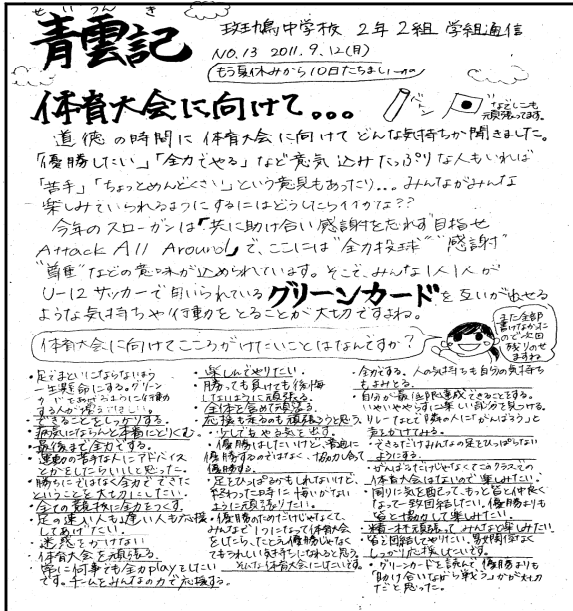 せいうんき
青雲記
斑鳩中学校 2年2組 学級通信
NO.13 2011.9.12(月)
もう夏休みから10日たちましたね
体育大会に向けて...
バトン
なでしこも頑張ってます。
道徳の時間に体育大会に向けてどんな気持ちか聞きました。
「優勝したい」「全力でやる」など意気込みたっぷりな人もいれば
「苦手」「ちょっとめんどくさい」という意見もあったり... みんながみんな
楽しみでいられるようにするにはどうしたらイイかな??
今年のスローガンは「共に助け合い感謝を忘れず目指せ
Attack All Around」で、ここには"全力投球""感謝"
"尊重"などの意味が込められています。そこで、みんな1人1人が
U-12サッカーで用いられているグリーンカードを互いが出せる
ような気持ちや行動をとることが大切ですよね。
また全部
書けなかった
ので次回
残りのせ
ますね
体育大会に向けてこころがけたいことはなんですか?
・足でまといにならないよう
一生懸命にする。グリーン
・できることをしっかりする。
・最後まで全力でする。
・運動の苦手な人にアドバイス
とかをしたらいいと思った。
・勝ちにではなく全力でできた
ということを大切にしたい。
・全ての競技に全力をつくす。
・足の速い人も遅い人も応援
してあげたい。
・迷惑をかけない
・体育大会を頑張る。
・常に何事でも全力playをしたい
です。チームをみんなの力で応援する。
・楽しんでやりたい。
・勝っても負けても後悔
しないように頑張る。
・全体を含めて頑張る。
・応援も走るのも頑張ろうと思う。
・少しでもやる気を出す。
・優勝はしたいけど、普通に
優勝するのではなく、協力し合って
優勝する。
・足をひっぱるかもしれないけど、
終わった時に悔いがない
ように頑張りたい。
・優勝のためだけじゃなくて、
みんなと1つになって体育大会
をしたら、たとえ優勝じゃなく
てもうれしい気持ちになれると思う。
そんな体育大会にしたいです。
・全力でする。人の気持ちも自分の気持ち
もよみとる。
・自分が最低限達成できることをする。
いやいややらずに楽しい部分を見つける。
リレーなどで隣の人に「がんばろう」と
声をかけてみる。
・できるだけみんなの足をひっぱらない
ようにする。
・がんばるだけじゃなくてこのクラスでの
体育大会はないので楽しみたい。
・周りに気を配って、もっと皆と仲良く
なって一致団結したい。優勝よりも
皆と協力して楽しみたい。
・精一杯頑張って、みんなと楽しみたい。
・皆と団結してやりたい。男女関係なく
しっかり応援したいです。
・グリーンカードを読んで、優勝よりも
「助け合いながら戦う」かが大切
だと思った。